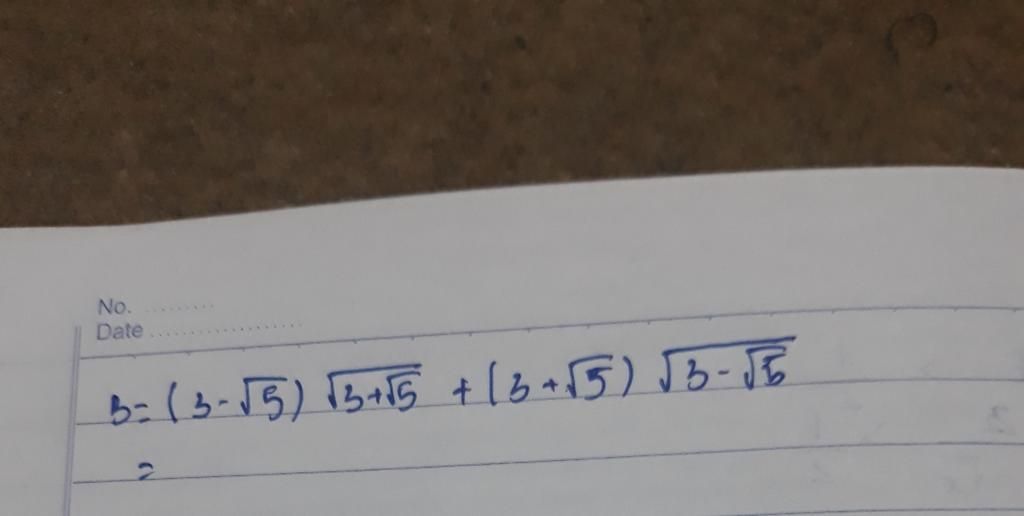 No. .........
Date ....................
B = (3-√5) √(3+√5) + (3+√5) √(3-√5)
=